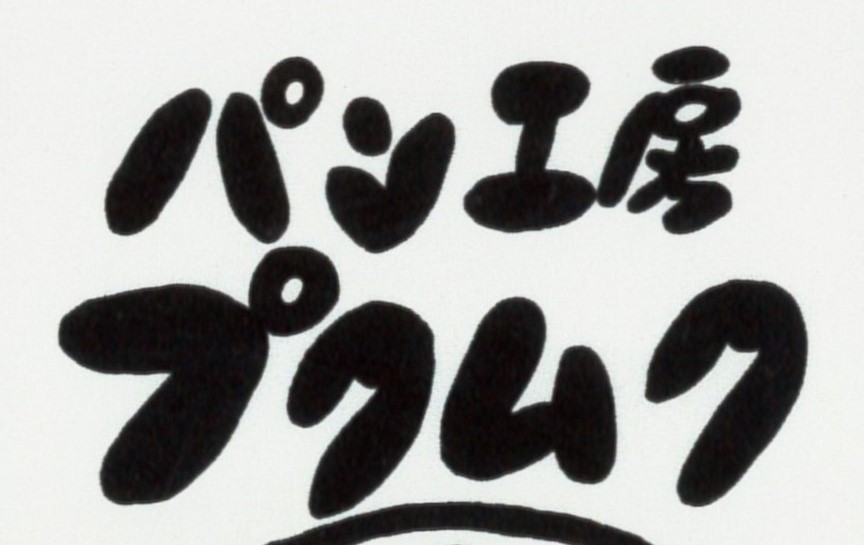 パン工房
プクムク